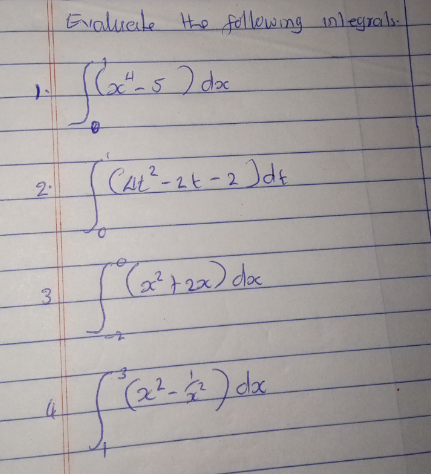 Evaluate the following integrals.
1. ∫₀¹ (x⁴ - 5) dx
2. ∫₀¹ (4t² - 2t - 2) dt
3 ∫₋₂⁰ (x² + 2x) dx
4 ∫₁³ (x² - 1/x²) dx